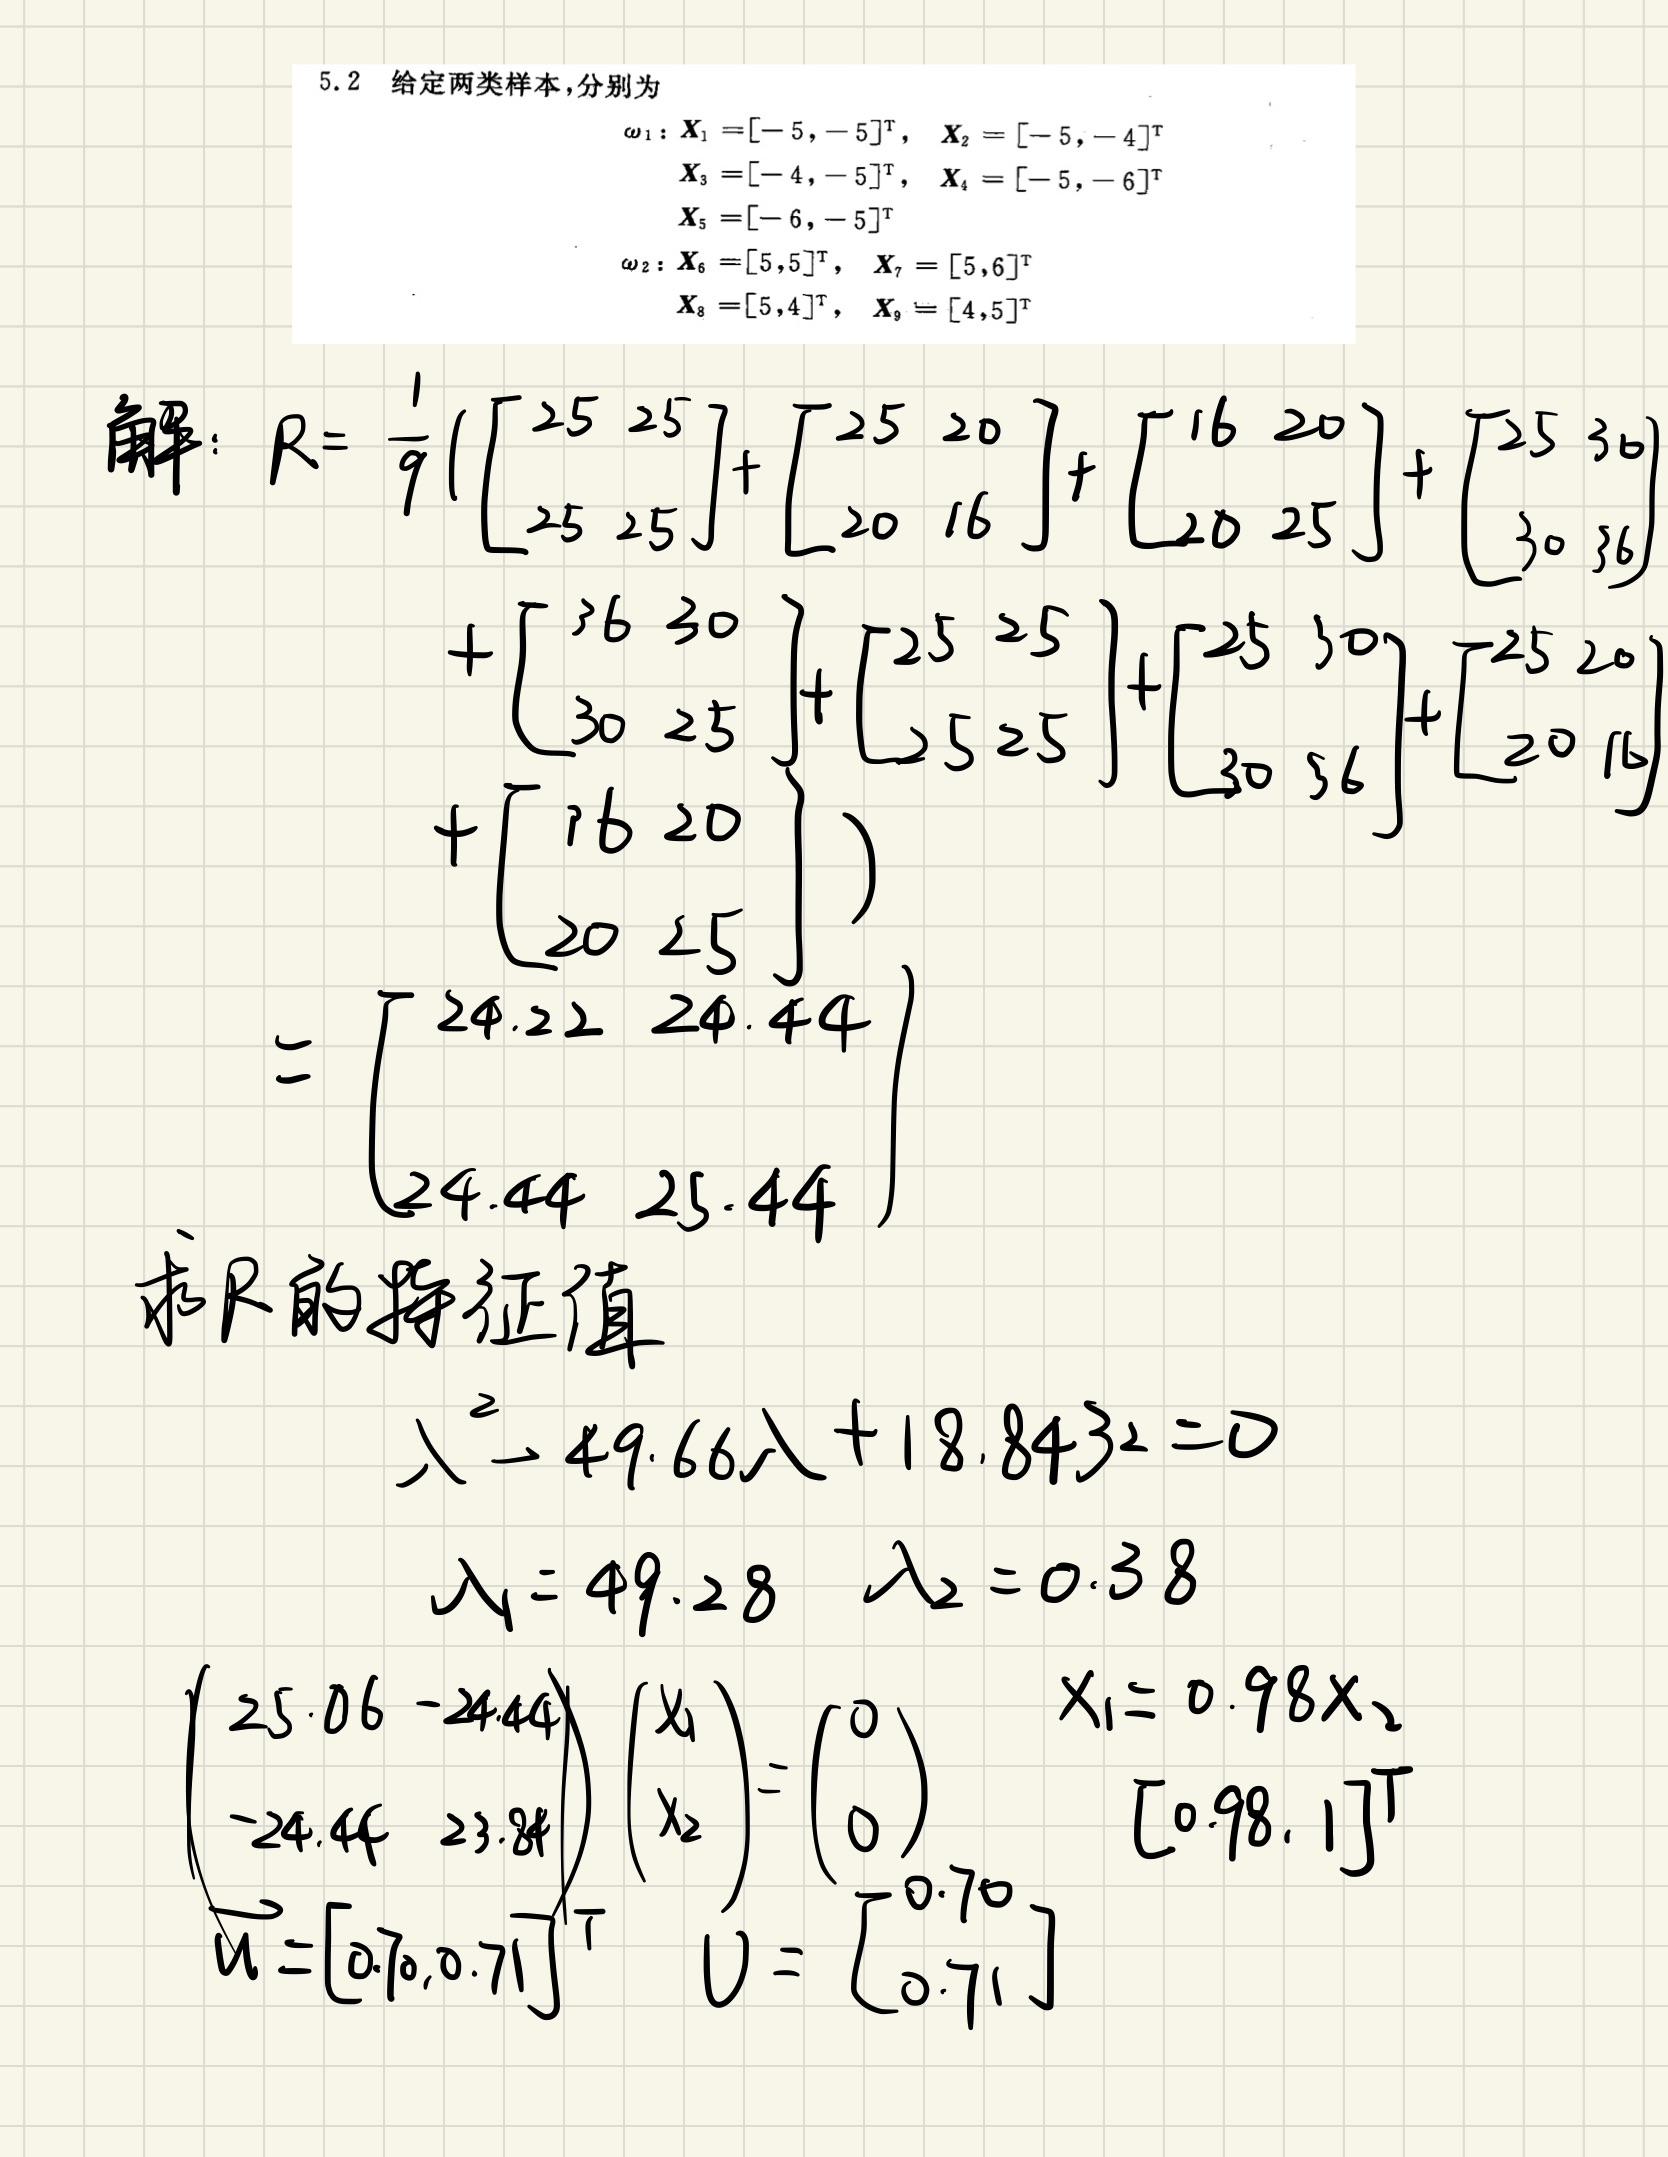 5.2 给定两类样本,分别为
ω₁: X₁ =[-5,-5]ᵀ, X₂ = [-5,-4]ᵀ
X₃ =[-4,-5]ᵀ, X₄ = [-5,-6]ᵀ
X₅ =[-6,-5]ᵀ
ω₂: X₆ =[5,5]ᵀ, X₇ = [5,6]ᵀ
X₈ =[5,4]ᵀ, X₉ = [4,5]ᵀ
解: R= 1/9 ( [25 25; 25 25] + [25 20; 20 16] + [16 20; 20 25] + [25 30; 30 36]
+ [36 30; 30 25] + [25 25; 25 25] + [25 30; 30 36] + [25 20; 20 16]
+ [16 20; 20 25] )
= [24.22 24.44; 24.44 25.44]
求R的特征值
λ² - 49.66λ + 18.8432 = 0
λ₁ = 49.28 λ₂ = 0.38
(25.06 -24.44; -24.44 23.84) (x₁; x₂) = (0; 0) x₁ = 0.98x₂
[0.98, 1]ᵀ
u⃗ = [0.70, 0.71]ᵀ U = [0.70; 0.71]